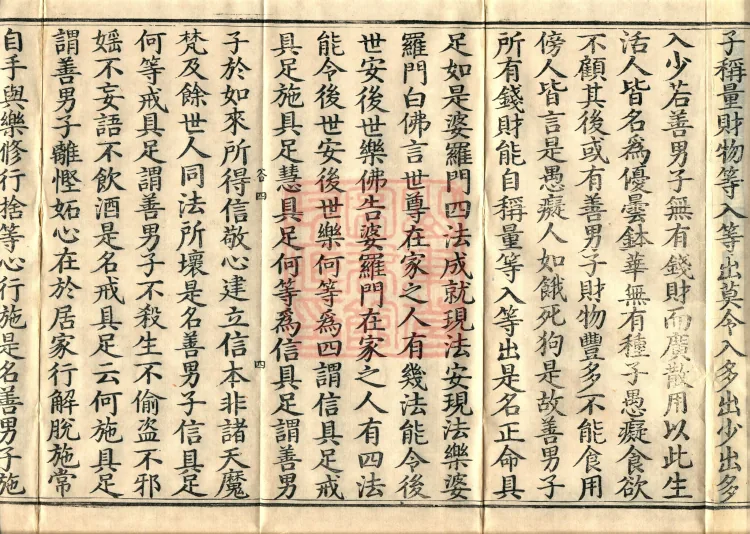 子稱量財物等入等出莫令入多出少出多
入少若善男子無有錢財而廣散用以此生
活人皆名為優曇鉢華無有種子愚癡食欲
不顧其後或有善男子財物豐多不能食用
傍人皆言是愚癡人如餓死狗是故善男子
所有錢財能自稱量等入等出是名正命具
足如是婆羅門四法成就現法安現法樂婆
羅門白佛言世尊在家之人有幾法能令後
世安後世樂佛告婆羅門在家之人有四法
能令後世安後世樂何等為四謂信具足戒
具足施具足慧具足何等為信具足謂善男
四
子於如來所得信敬心建立信本非諸天魔
梵及餘世人同法所壞是名善男子信具足
何等戒具足謂善男子不殺生不偷盜不邪
婬不妄語不飲酒是名戒具足云何施具足
謂善男子離慳妬心在於居家行解脫施常
自手與樂修行捨等心行施是名善男子施